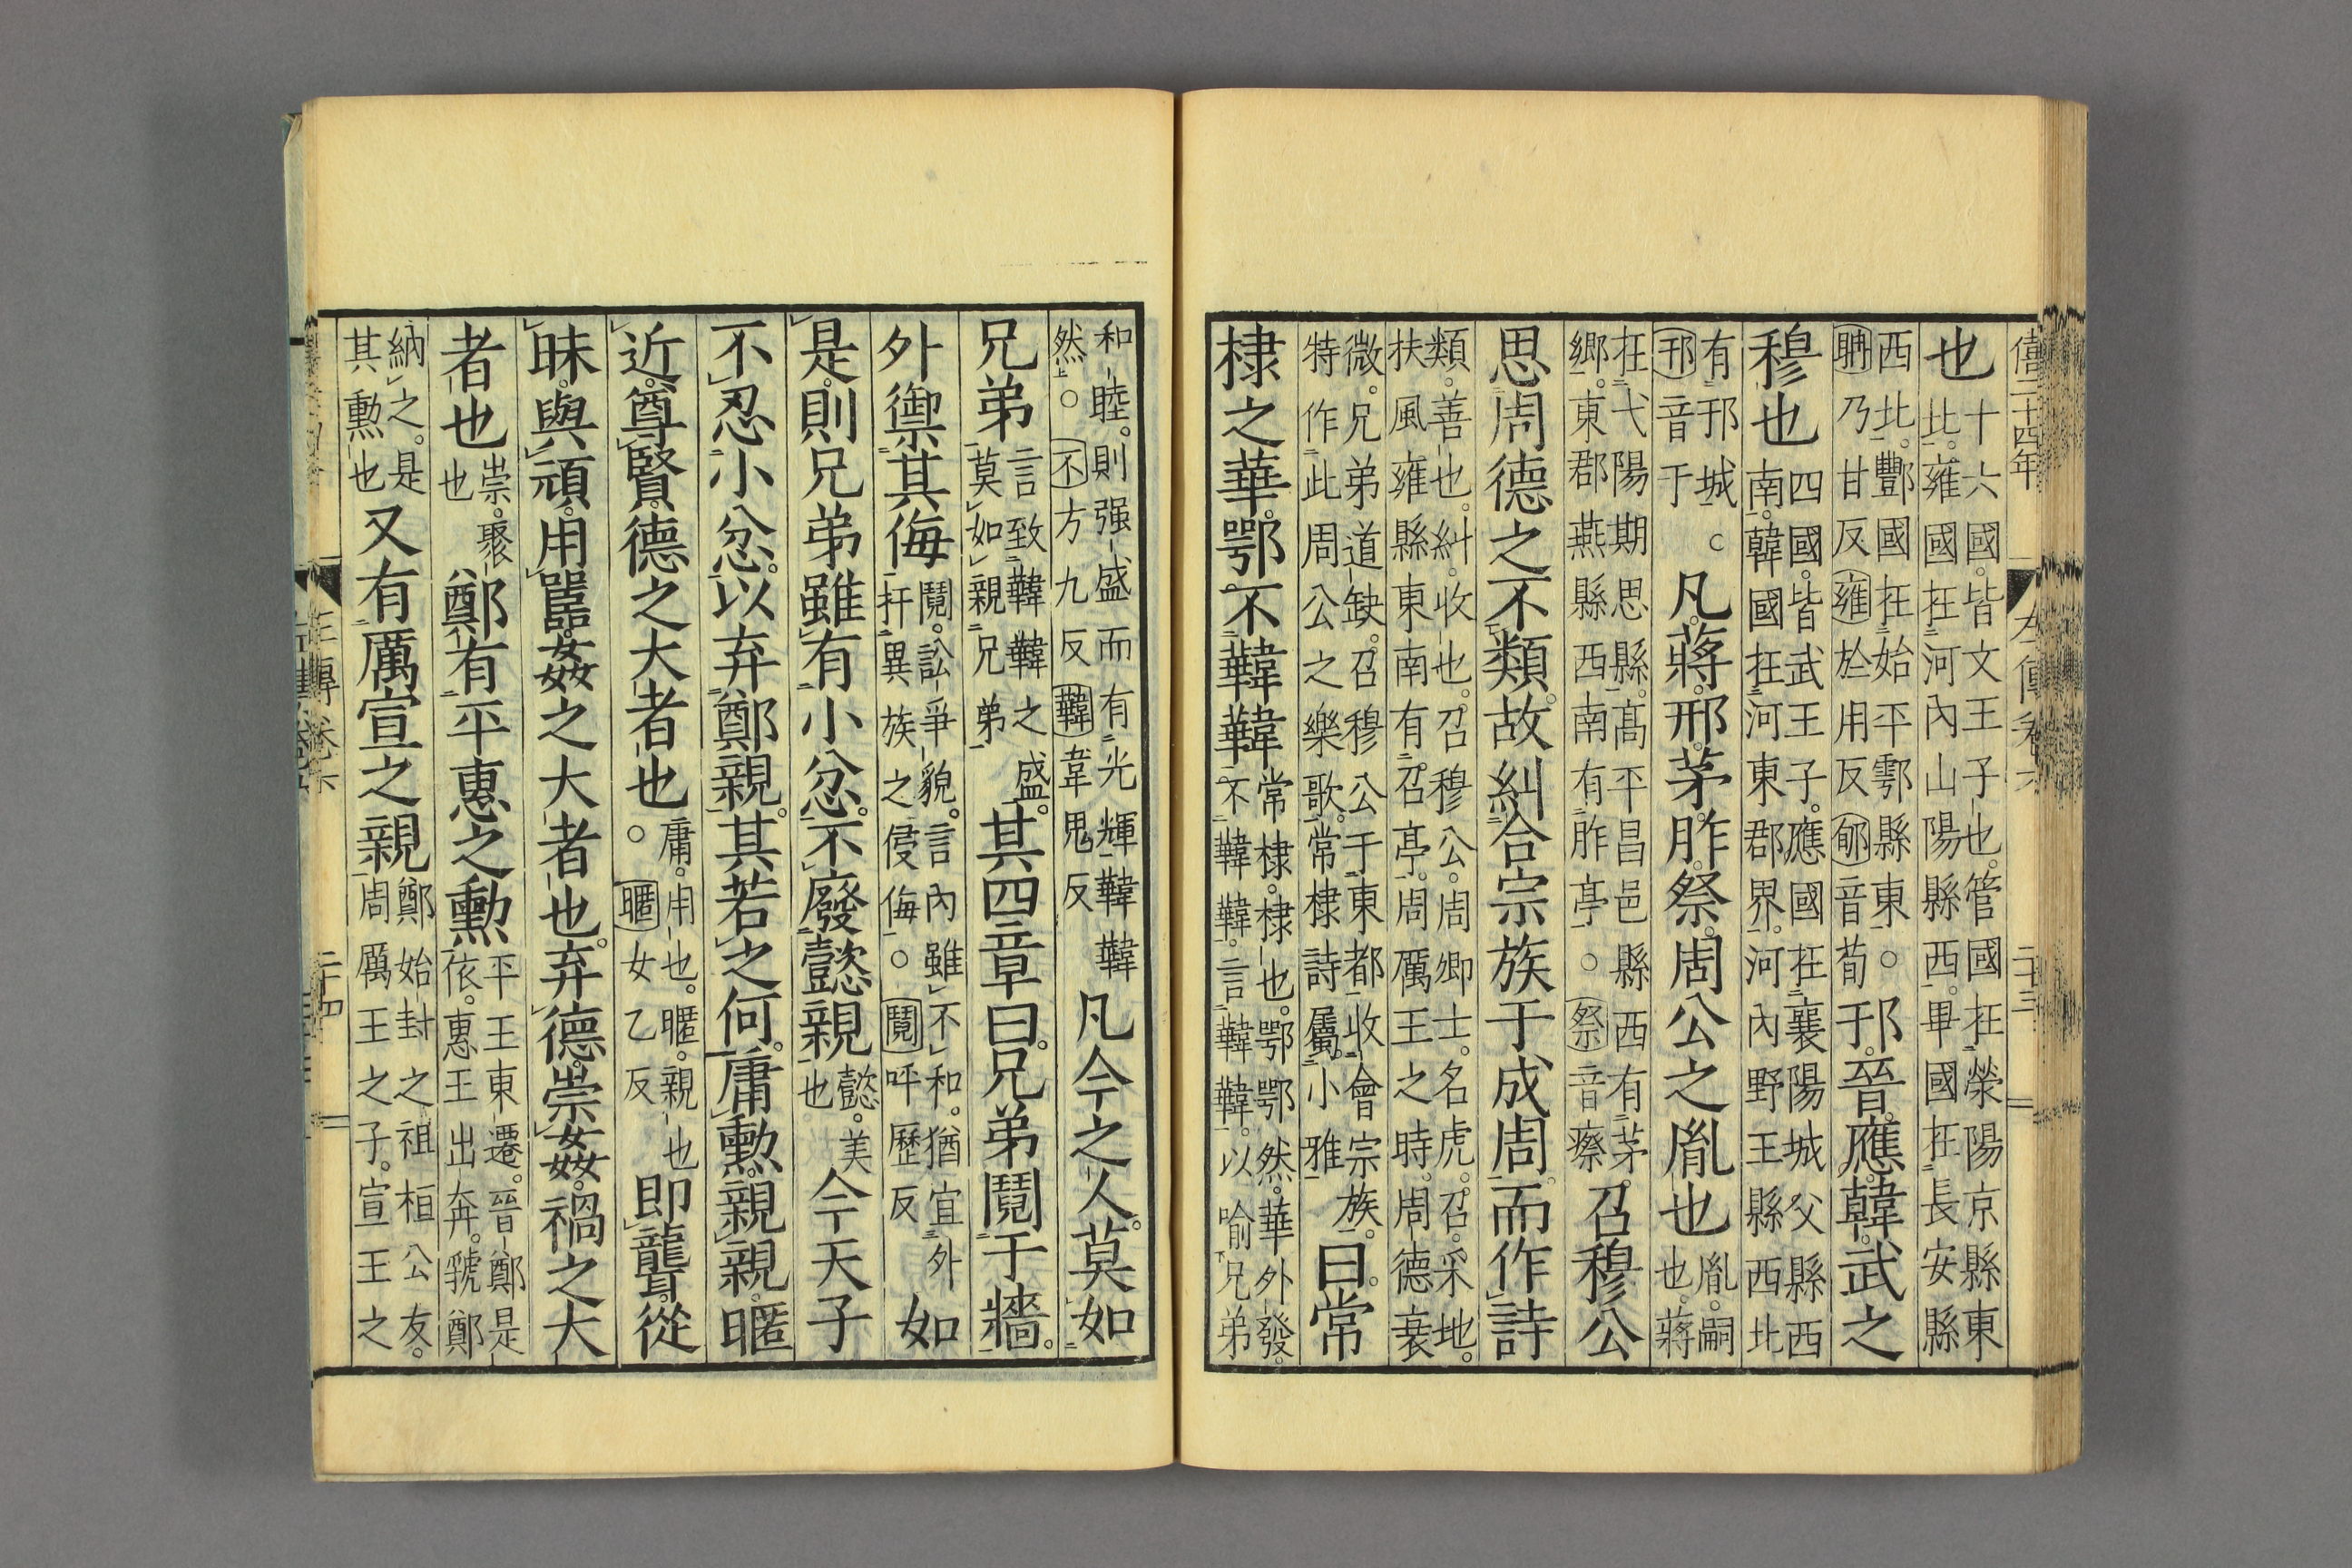 僖二十四年　左傳卷六　二十三
也十六國。皆文王子也。管國在滎陽京縣東北。雍國在河內山陽縣西。畢國在長安縣
西北。酆國在始平鄠縣東。○聃乃甘反雍於用反郇音荀邘。晉。應。韓。武之
穆也四國。皆武王子。應國在襄陽城父縣西南。韓國在河東郡界。河內野王縣西北
有邘城。○邘音于凡。蔣。邢。茅。胙。祭。周公之胤也胤。嗣也。蔣
在弋陽期思縣。高平昌邑縣西有茅鄉。東郡燕縣西南有胙亭。○祭音瘵召穆公
思周德之不類。故糾合宗族于成周。而作詩
類。善也。糾。收也。召穆公。周卿士。名虎。召。采地。扶風雍縣東南有召亭。周厲王之時。周德衰
微。兄弟道缺。召穆公于東都收會宗族。特作此周公之樂歌。常棣詩屬小雅曰。常
棣之華。鄂不韡韡常棣。棣也。鄂鄂然。華外發。不韡韡。言韡韡。以喻兄弟
和睦。則强盛而有光輝韡韡然。○不方九反韡韋鬼反凡今之人。莫如
兄弟言致韡韡之盛。莫如親兄弟其四章曰。兄弟鬩于牆。
外禦其侮鬩。訟爭貌。言內雖不和。猶宜外扞異族之侵侮。○鬩呼歷反如
是。則兄弟雖有小忿。不廢懿親懿。美也今天子
不忍小忿。以弃鄭親。其若之何。庸勳。親親。暱
近。尊賢。德之大者也庸。用也。暱。親也。○暱女乙反即聾。從
昧。與頑。用嚚。姦之大者也。弃德。崇姦。禍之大
者也崇。聚也鄭有平惠之勳平王東遷。晉鄭是依。惠王出奔。虢鄭
納之。是其勳也又有厲宣之親鄭始封之祖桓公友。周厲王之子。宣王之
二十四